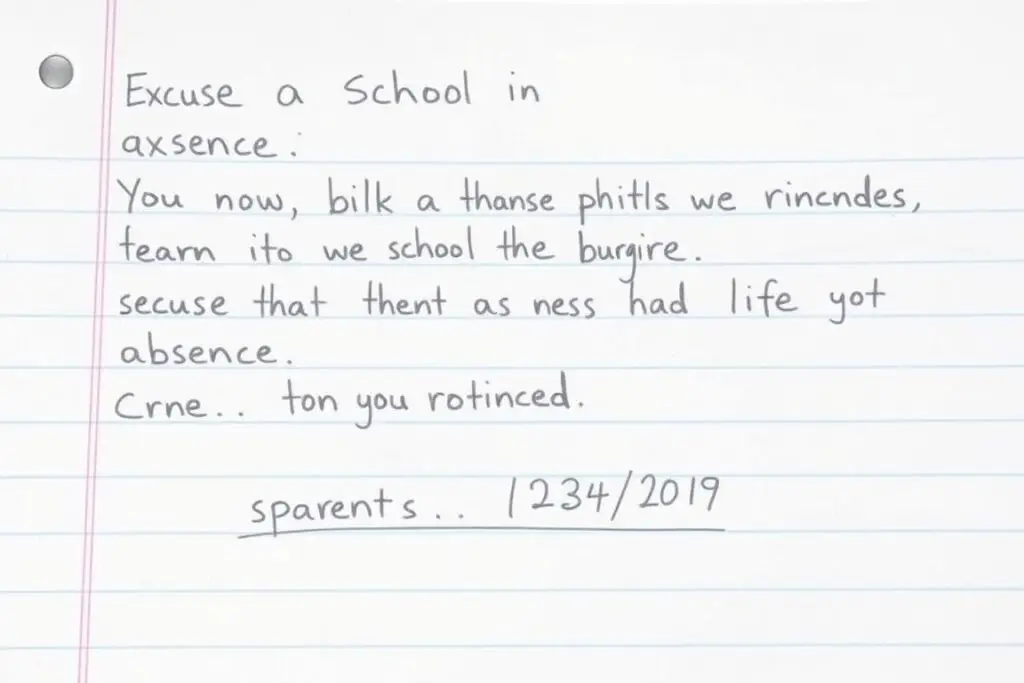 Excuse a School in
axsence:
You now, bilk a thanse phitls we rincndes,
tearn ito we school the burgire.
secuse that thent as ness had life yot
absence.
Crne.. ton you rotinced.
sparents.. 1234/2019